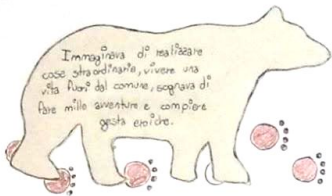 Immaginava di realizzare
cose straordinarie, vivere una
vita fuori dal comune, sognava di
fare mille avventure e compiere
gesta eroiche.